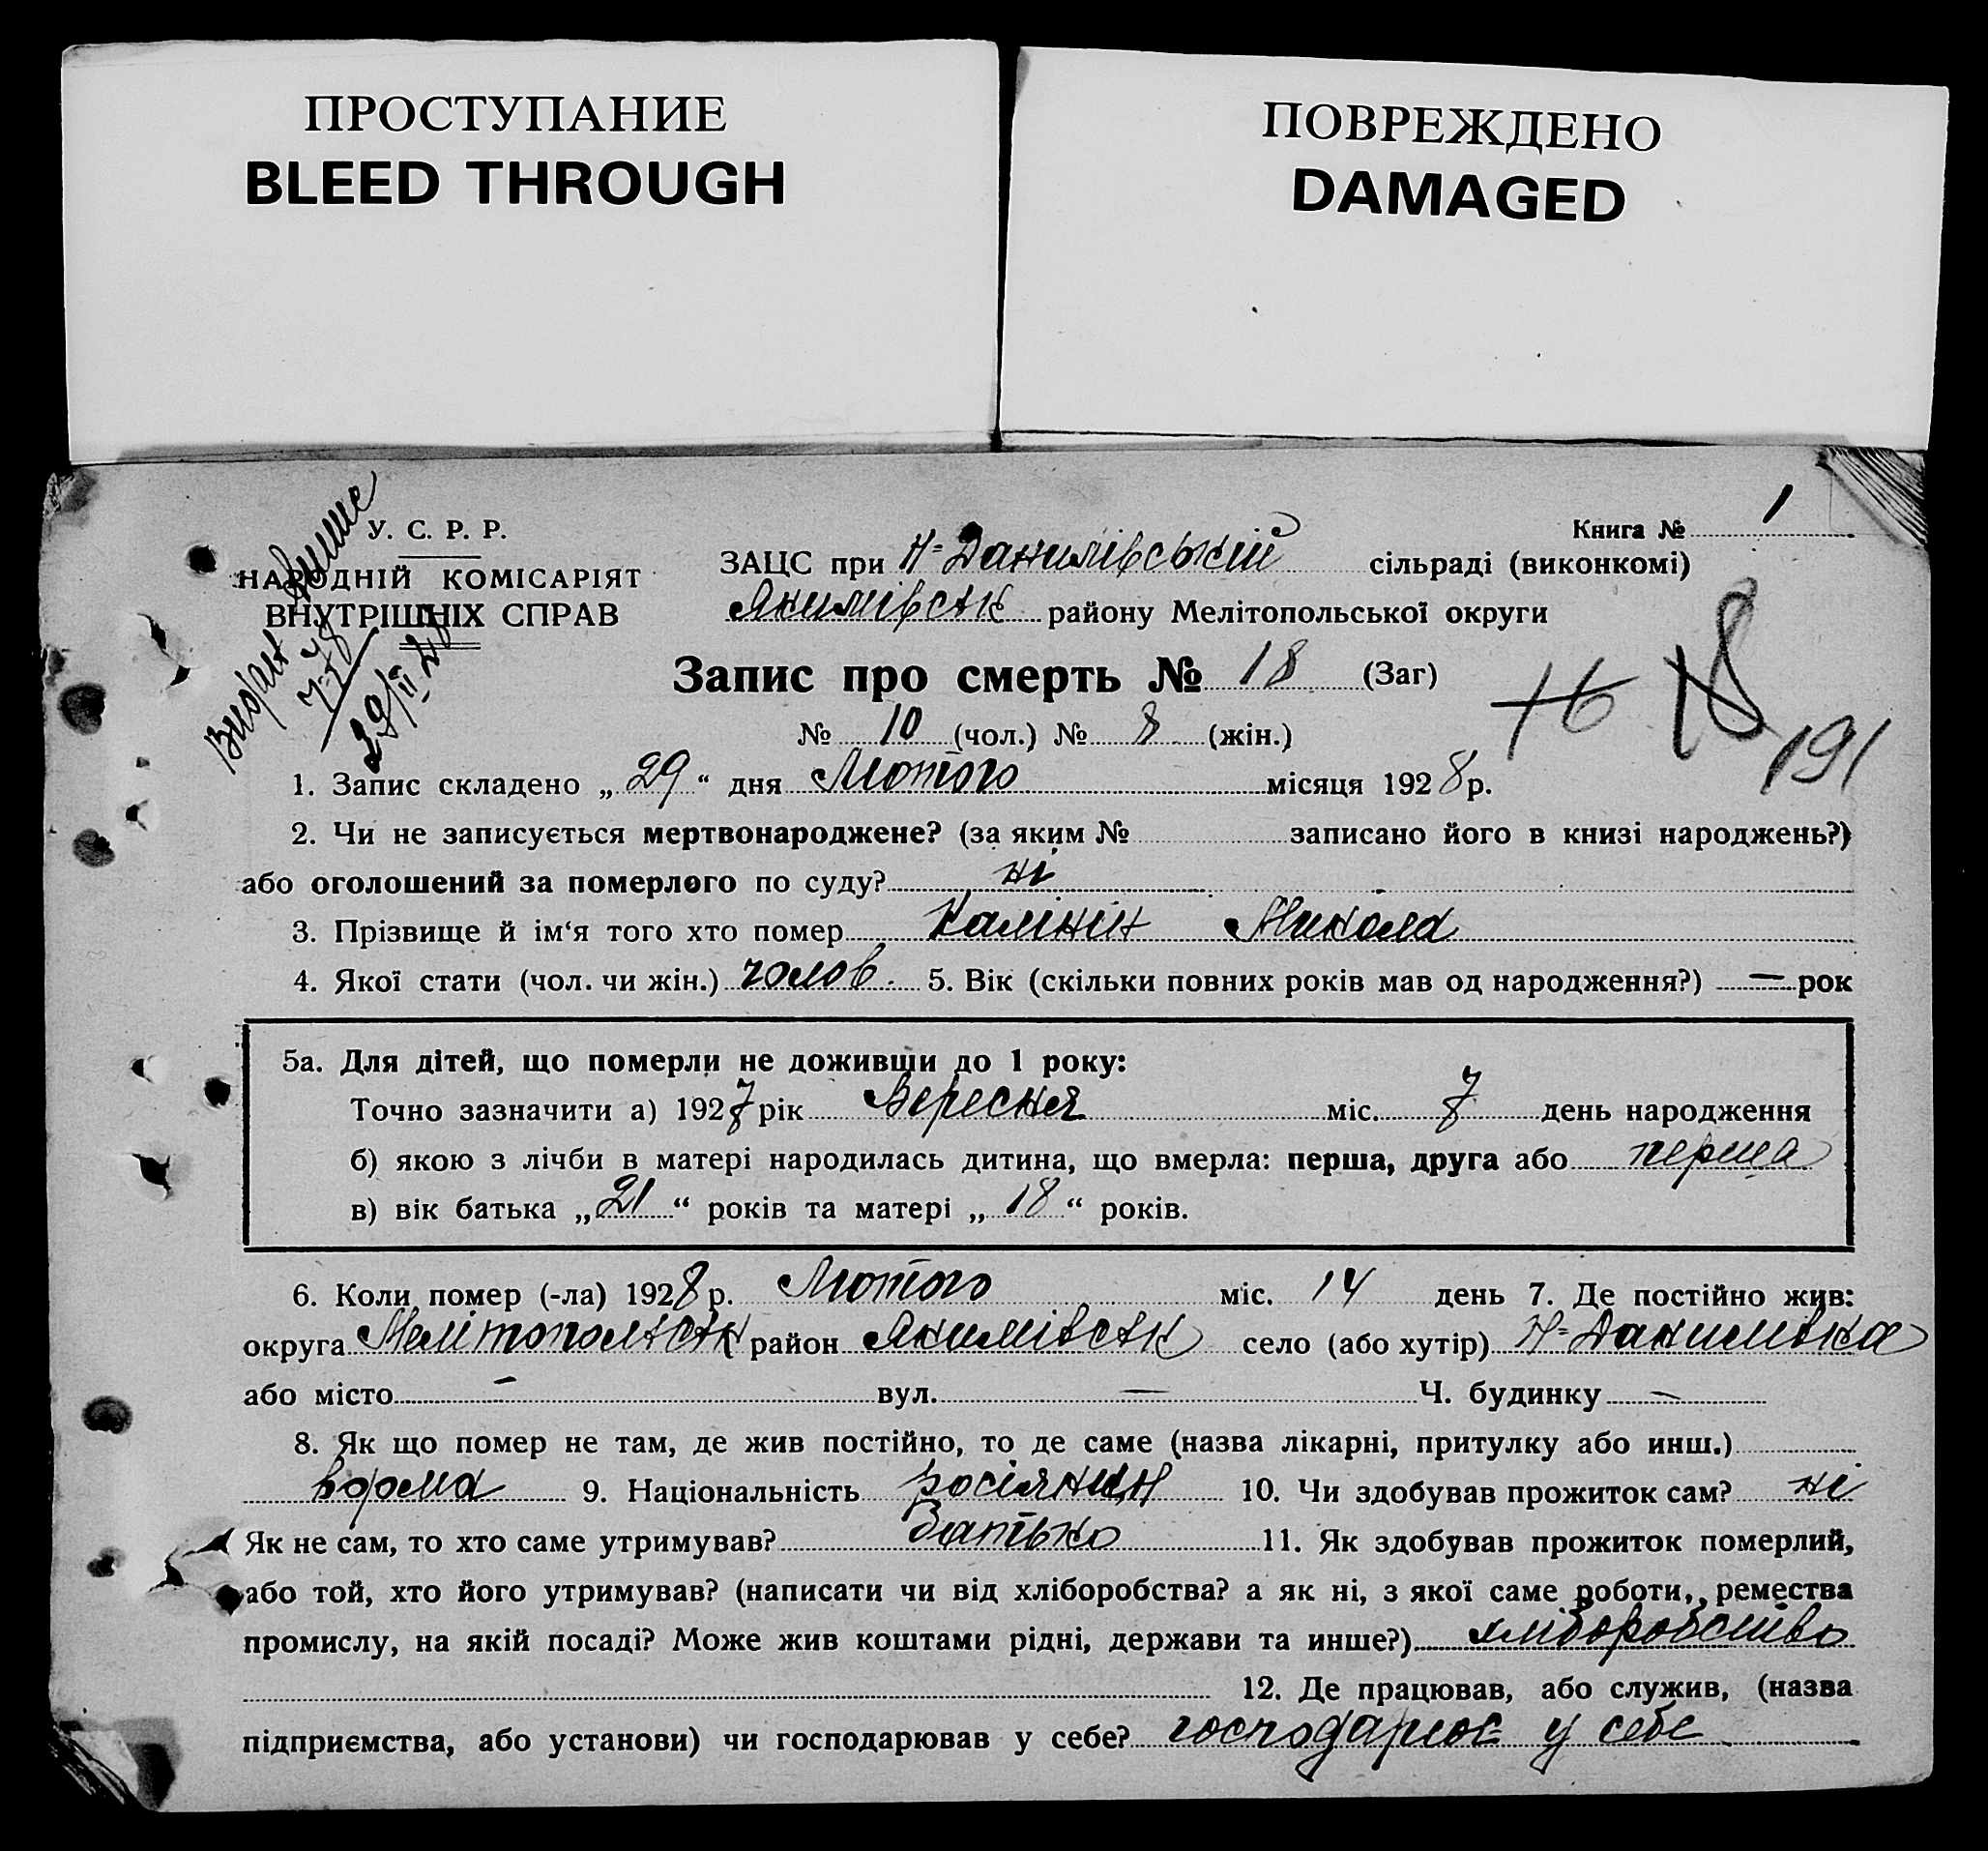 ПРОСТУПАНИЕ
BLEED THROUGH
ПОВРЕЖДЕНО
DAMAGED
У. С. Р. Р.
НАРОДНІЙ КОМІСАРІЯТ
ВНУТРІШНІХ СПРАВ
29/II 28
Книга № 1
ЗАЦС при Н-Данилівській сільраді (виконкомі)
Якимівськ району Мелітопольської округи
Запис про смерть № 18 (Заг)
16 18
191
№ 10 (чол.) № 8 (жін.)
1. Запис складено „29“ дня Лютого місяця 1928 р.
2. Чи не записується мертвонароджене? (за яким № записано його в книзі народжень?)
або оголошений за померлого по суду? ні
3. Прізвище й ім‘я того хто помер Калінін Микола
4. Якої стати (чол. чи жін.) голов. 5. Вік (скільки повних років мав од народження?) — рок
5а. Для дітей, що померли не доживши до 1 року:
Точно зазначити а) 1927 рік Вересня міс. 7 день народження
б) якою з лічби в матері народилась дитина, що вмерла: перша, друга або перша
в) вік батька „21“ років та матері „18“ років.
6. Коли помер (-ла) 1928 р. Лютого міс. 14 день 7. Де постійно жив:
округа Мелітопольськ район Якимівськ село (або хутір) Н-Данилівка
або місто — вул. — Ч. будинку —
8. Як що помер не там, де жив постійно, то де саме (назва лікарні, притулку або инш.)
вдома 9. Національність росіянин 10. Чи здобував прожиток сам? ні
Як не сам, то хто саме утримував? Батько 11. Як здобував прожиток померлий,
або той, хто його утримував? (написати чи від хліборобства? а як ні, з якої саме роботи, ремества
промислу, на якій посаді? Може жив коштами рідні, держави та инше?) хліборобство
12. Де працював, або служив, (назва
підприємства, або установи) чи господарював у себе? господарює у себе